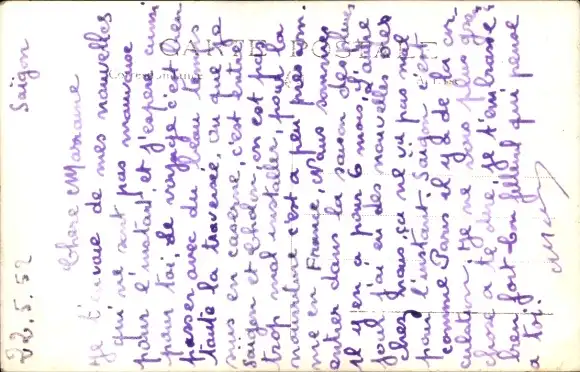 CARTE POSTALE
Correspondance
22.5.52
Saïgon
Chere Marraine
Je t'envoie de mes nouvelles
qui ne sont pas mauvaise
pour l'instant et j'espère aussi
pour toi, le voyage c'est bien
passer avec du beau temps
toute la traversée, vu que je
suis en caserne, c'est entre
Saïgon et Cholon, on est pas
trop mal installer, pour la
nourriture c'est a peu près com.
me en France, Nous sommes
entrer dans la saison des pluies
il y en a pour 6 mois, L'autre
jour j'ai eu des nouvelles de
chez nous ça ne va pas mal
pour l'instant. Saïgon c'est
comme Paris il y a de la cir-
culation, Je ne vois plus gra-
chose a te dire, je t'embrasse
bien fort ton filleul qui pense
a toi.